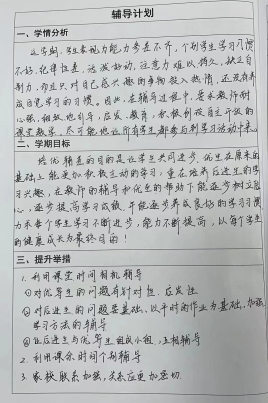 辅导计划
一、学情分析
这学期，学生表现为能力参差不齐，个别学生学习习惯
不好，纪律性差，活泼好动，注意力难以持久，缺乏自
制力，而且只对自己感兴趣的事物投入热情，还没有养
成自觉学习的习惯。因此，在辅导过程中，要求教师耐
心强，细致地引导，应发、教育，积极创设自主开放的
课堂教学，尽可能地让所有学生都参与到学习活动中来。
二、学期目标
培优辅差的目的是让学生共同进步，优生在原来的
基础上能更加积极主动的学习，重在培养后进生的学
习兴趣，在教师的辅导和优生的帮助下能逐步树立信
心，逐步提高学习成绩，并能逐步养成良好的学习习惯
力求每个学生学习不断进步，能力不断提高，以每个学生
的健康成长为最终目的！
三、提升举措
1. 利用课堂时间相机辅导
①对优等生的问题有针对性、应发性
②对后进生的问题要基础、以平时的作业为基础、加强
学习方法的辅导
③让后进生与优等生组成小组，互相辅导
2. 利用课余时间个别辅导
3. 家校联系加强，关系应更加密切